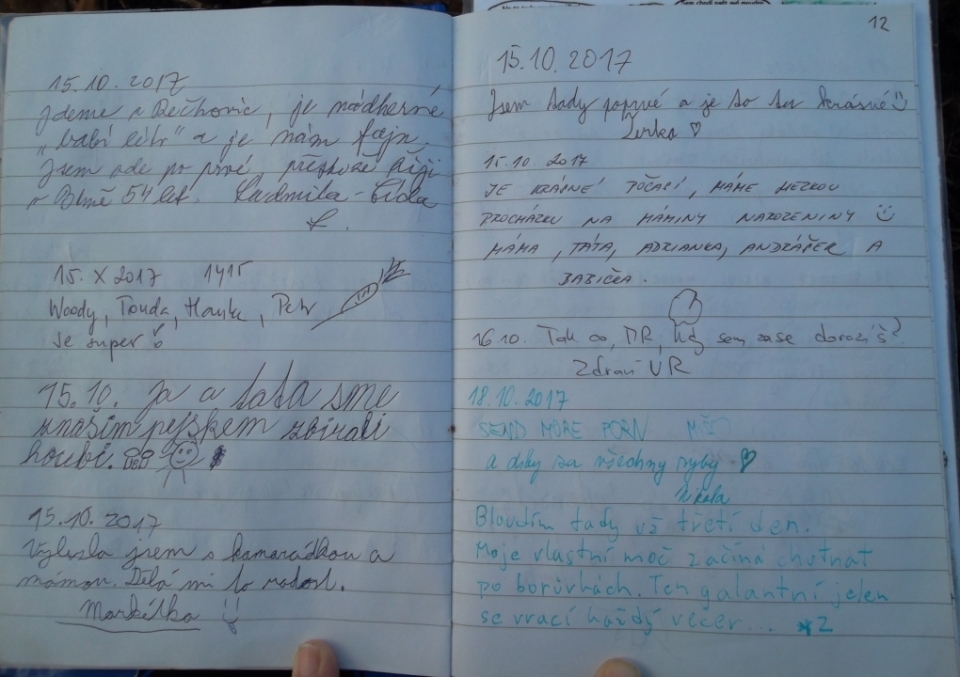 15.10.2017
Jdeme z Běchovic, je nádherné
„babí léto" a je nám fajn.
Jsem zde po prvé, přestože žiji
v Praze 54 let. Ludmila -
15. X 2017 1415
Woody, Touda, Hanka, Petr
Je super
15.10. Ja a tata sme
znašim pejskem zbirali
houbi.
15.10.2017
Vylezla jsem s kamarádkou a
mámou. Dělá mi to radost.
Markétka
12
15.10.2017
Jsem tady poprvé a je to tu krásné
Terka ♥
15.10.2017
JE KRÁSNÉ POČASÍ, MÁME HEZKOU
PROCHÁZKU NA MÁMINY NAROZENINY
MÁMA, TÁTA, ADRIANKA, ANDRÁŠEK A
BABIČKA.
16.10. Tak co, DR, kdy sem zase dorazíš?
Zdraví VR
18.10.2017
SEND MORE PORN
a díky za všechny ryby ♥
Nikola
Bloudím tady už třetí den.
Moje vlastní moč začíná chutnat
po borůvkách. Ten galantní jelen
se vrací každý večer...